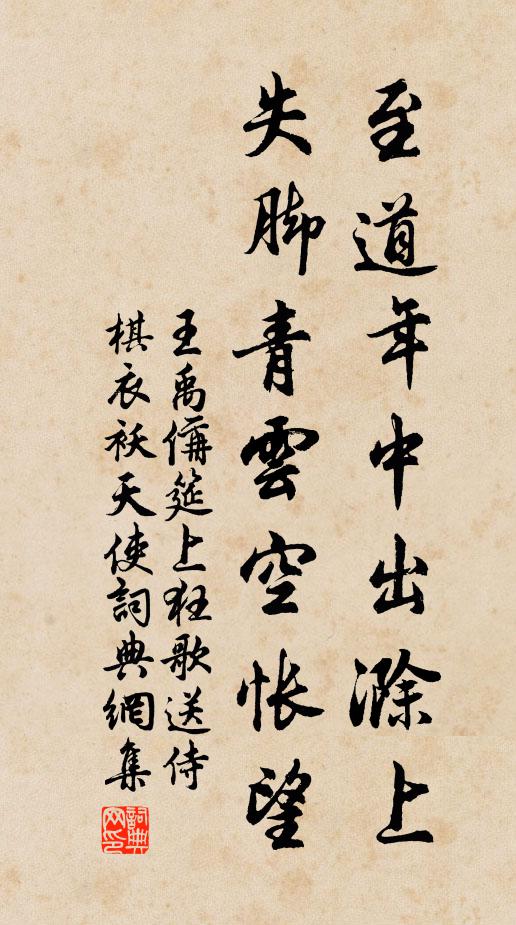 至道年中出滁上
失脚青雲空悵望
王禹偁筵上狂歌送侍
棋衣袄天使詞典網集
詞典
网印